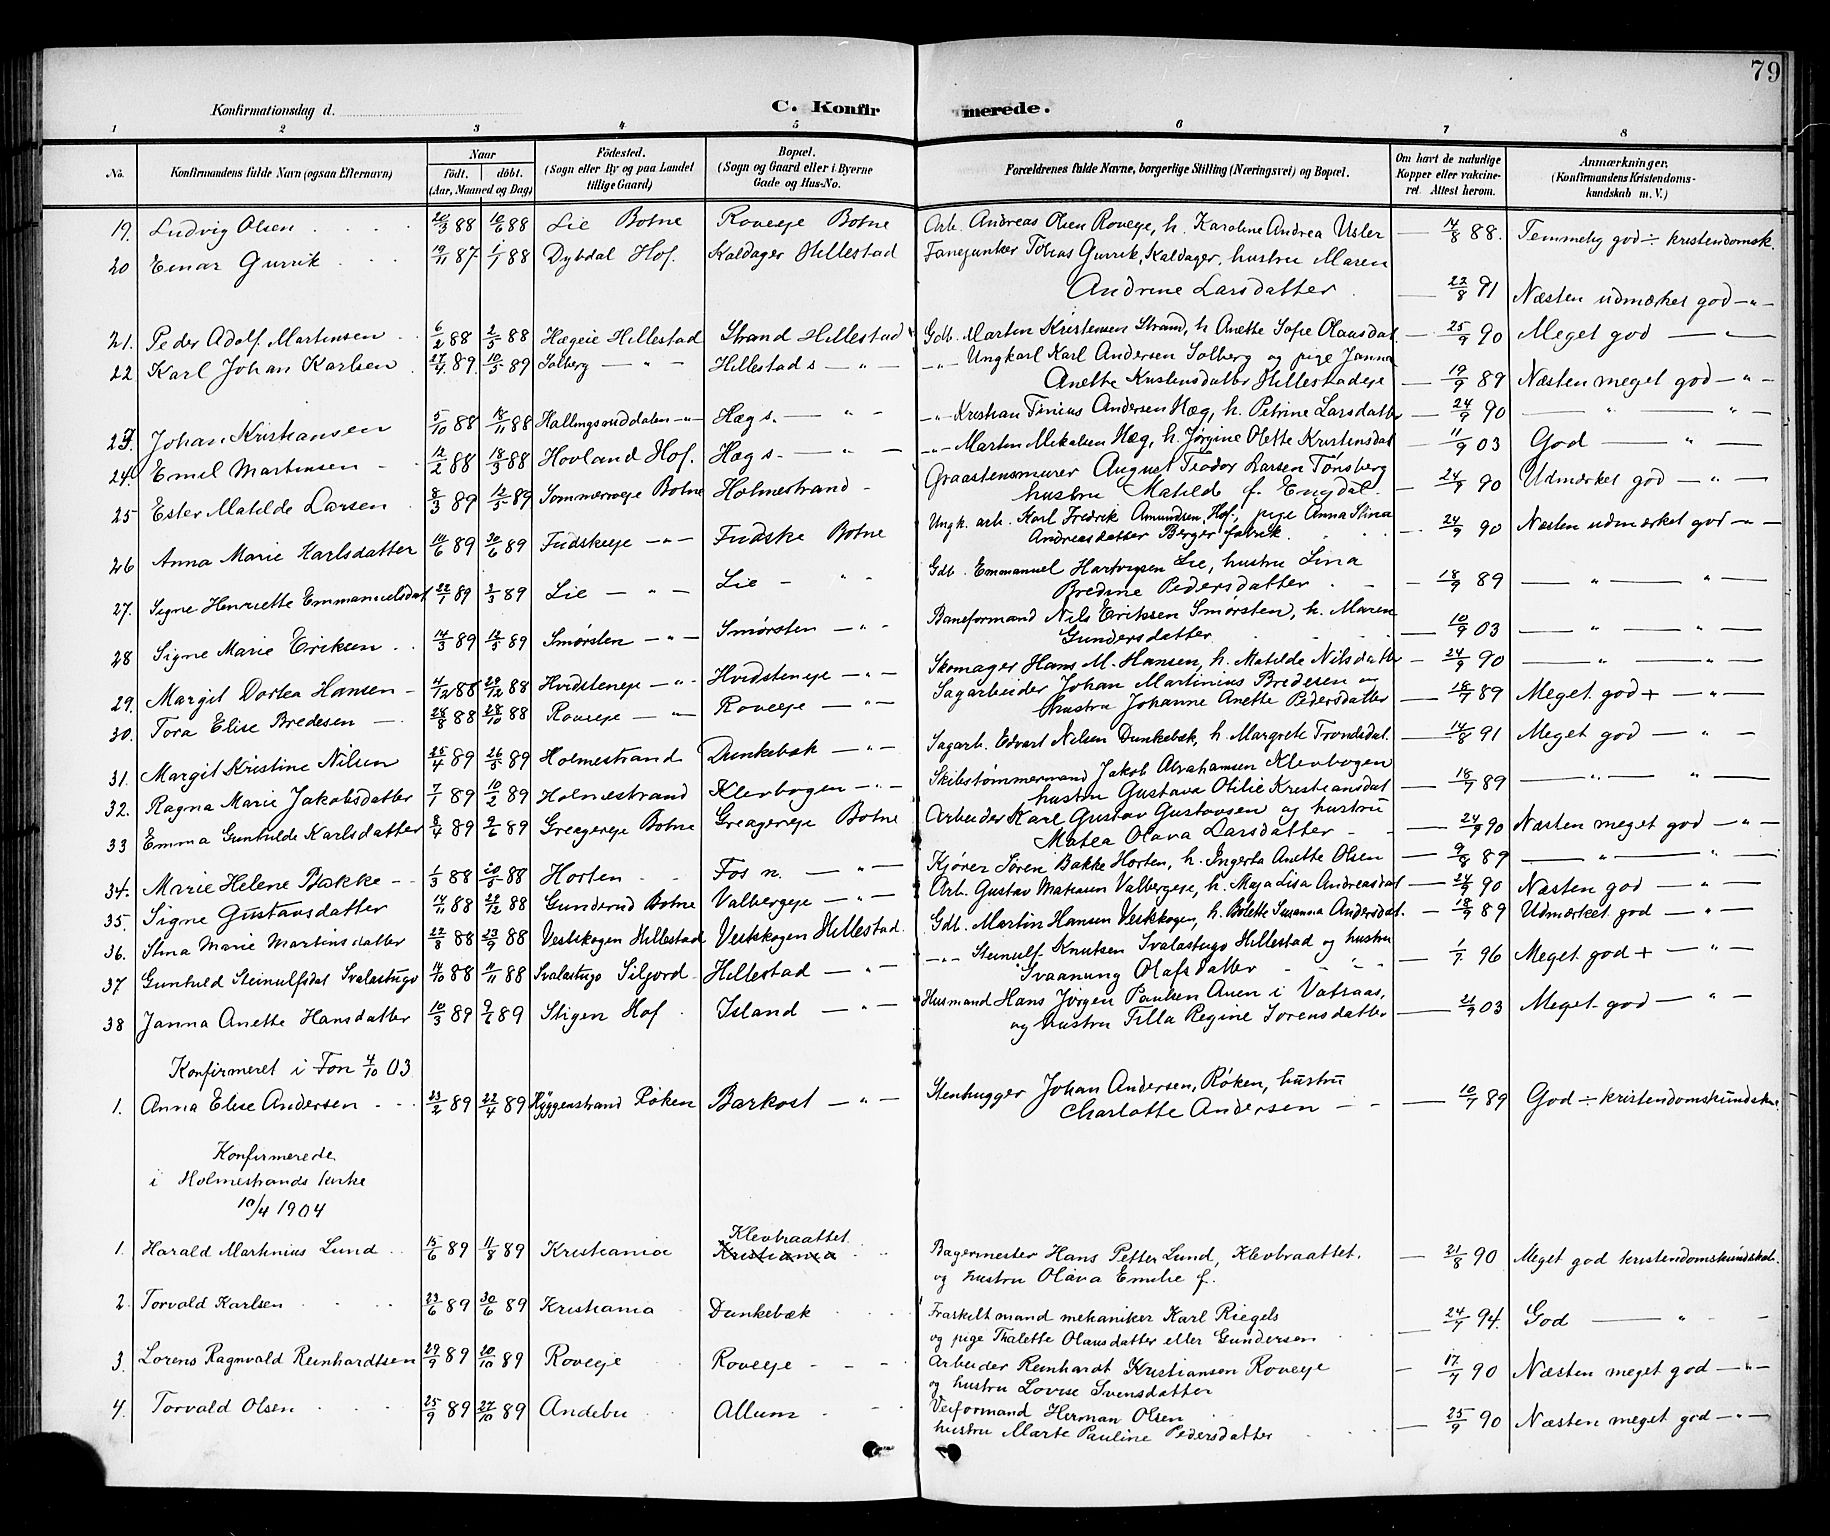 79
Konfirmationsdag d.
C. Konfirmerede.
1 2 3 4 5 6 7 8
No. Konfirmandens fulde Navn (ogsaa Efternavn) Naar født. døbt. (Aar, Maaned og Dag) Fødested. (Sogn eller By og paa Landet tillige Gaard) Bopæl. (Sogn og Gaard eller i Byerne Gade og Hus-No. Forældrenes fulde Navne, borgerlige Stilling (Næringsvei) og Bopæl. Om havt de naturlige Kopper eller vakcineret. Attest herom. Anmærkninger. (Konfirmandens Kristendomskundskab m. V.)
19. Ludvig Olsen 20/3 88 10/6 88 Lie Botne Roveeje Botne Arb. Andreas Olsen Roveeje, h. Karoline Andrea — 14/8 88. Temmelig god ÷ kristendomsk.
20 Einar Gurrik 19/11 87 1/1 88 Dybdal Hof. Kaldager Hillestad Fanejunker Tobias Gurrik, Kaldager, hustru Maren
Andrine Larsdatter — 22/8 91 Næsten udmærket god — " —
21. Peder Adolf Martinsen 6/2 88 2/5 88 Hægeie Hillestad Strand Hillestad Gdb. Martin Kristensen Strand, h Anette Sofie Olausdat — 25/9 90 Meget god — " —
22 Karl Johan Karlsen 27/4 89. 10/5 89 Solberg — " — Hillestad s — " — — " — Ungkarl Karl Andersen Solberg og pige Janna
Anette Kristensdatter Hillestadeje — 19/9 89 Næsten meget god — " —
23. Johan Kristiansen 5/10 88 18/11 88 Hallingsruddalen — " — Hæg s. — " — — " — Kristian Tinius Andersen Hæg, h. Petrine Larsdatter — 24/9 90 — " — " —
24. Emil Martinsen 12/2 88 18/3 88 Hovland Hof. Hæg s. — " — — " — Martin Mikalsen Hæg, h. Jørgine Olette Kristensdat — 11/9 03 God — " —
25 Ester Matilde Larsen 8/3 89 12/5 89 Sommerroeje Botne Holmestrand — Graastensmurer August Teodor Larsen Tønsberg
hustru Matilde f. Engdal. — 24/9 90 Udmærket god — " —
26 Anna Marie Karlsdatter 14/6 89 30/6 89 Fudskeeje — " — Fudske Botne Ungk. arb. Karl Fredrik Amundsen, Hof, pige Anna Stina
Andreasdatter Berger fabrik. — 24/9 90 Næsten udmærket god — " —
27. Signe Henriette Emmanuelsdat 22/1 89 3/3 89 Lie — " — Lie — " — Gdb. Emmanuel Hartvigsen Lie, hustru Lina
Bredine Pedersdatter — 18/9 89 — " — " —
28 Signe Marie Eriksen 14/3 89 12/5 89 Smørsten — " — Smørsten — " — Baneformand Nils Eriksen Smørsten, h. Maren
Gundersdatter — 10/9 03 — " — " —
29. Margit Dortea Hansen 4/12 88 26/12 88 Hvidsteneje — " — Hvidsteneje — " — Skomager Hans M. Hansen, h. Matilde Nilsdatter — 24/9 90 — " — " —
30. Tora Elise Bredesen — 24/8 88 28/10 88 Roveeje — " — Roveeje — " — Sagarbeider Johan Martinius Bredesen og
hustru Johanne Anette Pedersdatter — 18/9 89 Meget god + — " —
31. Margit Kristine Nilsen 25/4 89 26/5 89 Holmestrand Dunkebæk — " — Sagarb. Edvart Nilsen Dunkebæk, h. Margrete Trondsdat. — 14/8 91 Meget god — " —
32. Ragna Marie Jakobsdatter 7/1 89 10/2 89 Holmestrand Klevbogen — " — Skibstømmermand Jakob Abrahamsen Klevbogen
hustru Gustava Otilie Kristiansdat — 18/9 89 — " — " —
33 Emma Gunhilde Karlsdatter 8/4 89 9/6 89 Greagereje Botne Greagereje Botne Arbeider Karl Gustav Gustavsen og hustru
Matea Olava Larsdatter — 24/9 90 Næsten meget god — " —
34. Marie Helene Bakke 1/3 88 20/5 88 Horten Fos n. — " — Kjører Søren Bakke Horten, h. Ingerta Anette Olsen — 9/8 89 — " — " —
35. Signe Gustavsdatter 14/11 88 26/12 88 Gunderud Botne Valbergeje — " — Arb. Gustav Matiasen Valbergeje, h. Maja Lisa Andreasdat — 24/9 90 Næsten god — " —
36. Stina Marie Martinsdatter 22/8 88 23/9 88 Vestskogen Hillestad Vestskogen Hillestad. Gdb. Martin Hansen Vestskogen, h. Bolette Susanna Andersdat. — 18/9 89 Udmærket god — " —
37 Gunhild Steinulfsdat Svalastugo 14/10 88 11/11 88 Svalastugo Siljord Hillestad — " — — " — Steinulf Knutsen Svalastugo Hillestad og hustru
Svaanung Olafsdatter — 1/7 96 Meget god + — " —
38 Janna Anette Hansdatter 10/3 89 9/6 89 Stigen Hof Island — " — Husmand Hans Jørgen Paulsen Auen i Vatsaas,
og hustru Tilla Regine Sørensdatter — 21/9 03 Meget god — " —
Konfirmeret i Fon 4/10 03
1. Anna Elise Andersen 23/2 89 22/4 89 Hyggenstrand Røken Barkost — " — Stenhugger Johan Andersen, Røken, hustru
Charlotte Andersen — 10/7 89 God ÷ kristendomskundsk.
Konfirmerede
i Holmestrands kirke
10/4 1904
1. Harald Martinius Lund 15/6 89 11/8 89 Kristiania Klevbraattet Kristiania Bagermester Hans Petter Lund, Klevbraattet.
og hustru Olava Emilie f. — 21/8 90 Meget god kristendomskundskab.
2. Torvald Karlsen 23/6 89 30/6 89 Kristiania Dunkebæk Fraskilt mand mekaniker Karl Riegels
og pige Thalette Olausdatter eller Gundersen — 24/7 94. God — " —
3. Lorens Ragnvald Reinhardtsen 29/9 89 20/10 89 Roveeje Roveeje Arbeider Reinhardt Kristiansen Roveeje
og hustru Lovise Svensdatter — 17/7 90 Næsten meget god — " —
4. Torvald Olsen 25/9 89 27/10 89 Andebu Allum Veiformand Herman Olsen
hustru Marte Pauline Pedersdatter — 25/9 90 Næsten meget god — " —